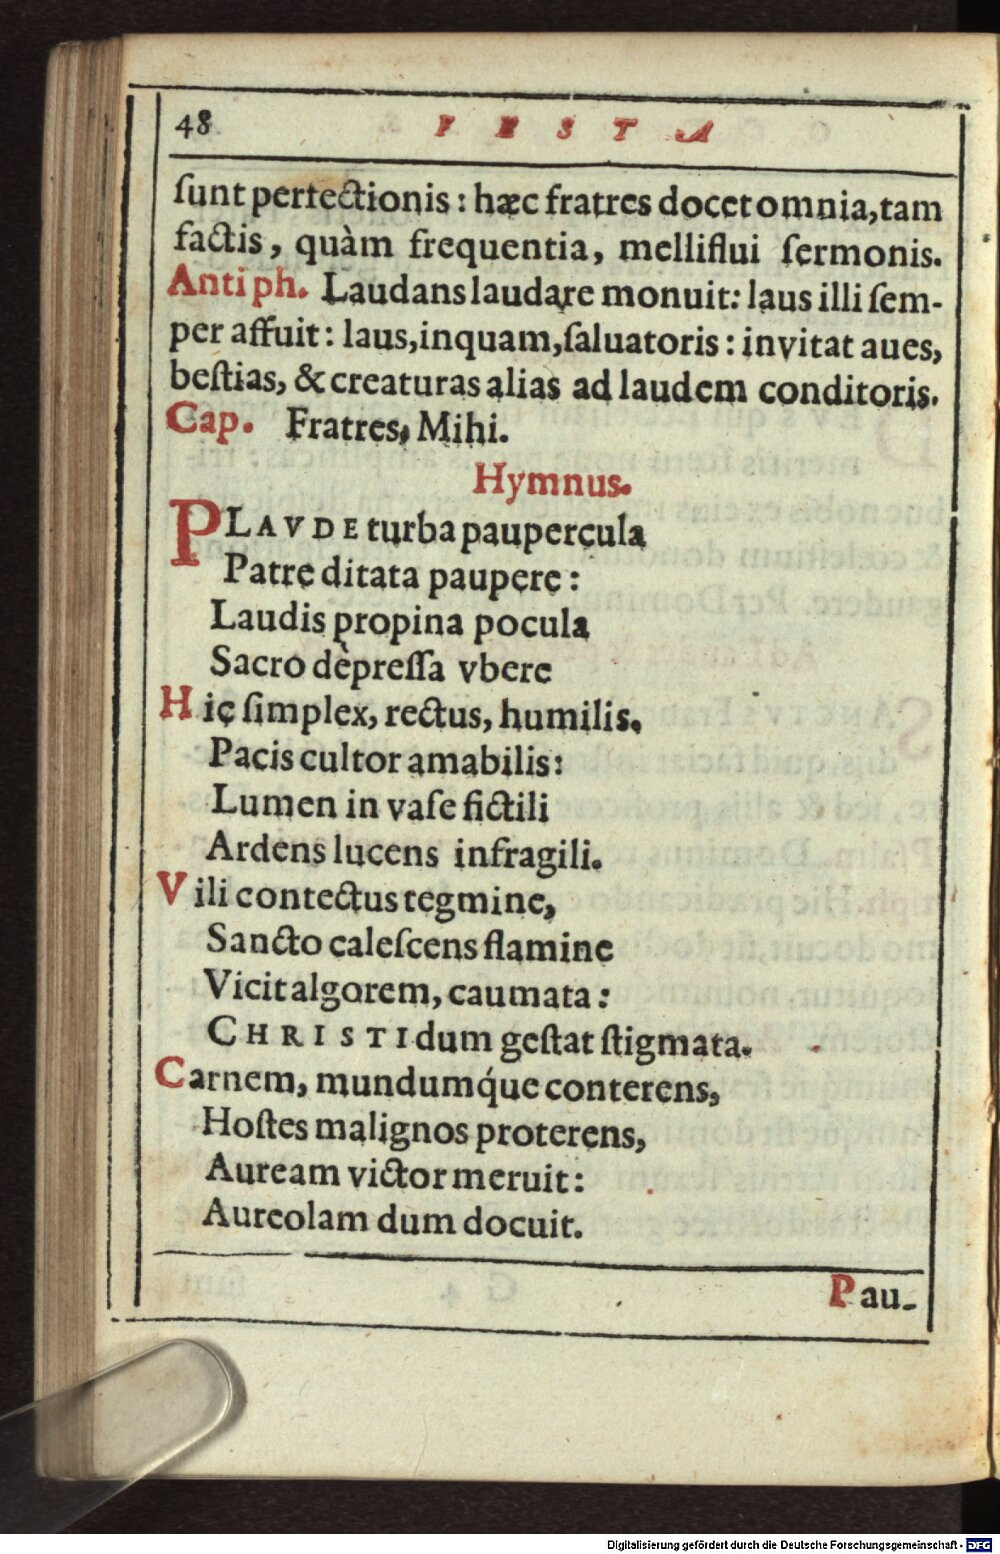 48 FESTA
sunt pertectionis: hæc fratres docet omnia, tam
factis, quàm frequentia, melliflui sermonis.
Antiph. Laudans laudare monuit: laus illi sem-
per affuit: laus, inquam, saluatoris: invitat aues,
bestias, & creaturas alias ad laudem conditoris.
Cap. Fratres, Mihi.
Hymnus.
PLAVDE turba paupercula
Patre ditata paupere:
Laudis propina pocula
Sacro depressa vbere
Hic simplex, rectus, humilis,
Pacis cultor amabilis:
Lumen in vase fictili
Ardens lucens in fragili.
Vili contectus tegmine,
Sancto calescens flamine
Vicit algorem, caumata:
CHRISTI dum gestat stigmata.
Carnem, mundumq́ue conterens,
Hostes malignos proterens,
Auream victor meruit:
Aureolam dum docuit.
Pau-
Digitalisierung gefördert durch die Deutsche Forschungsgemeinschaft - DFG